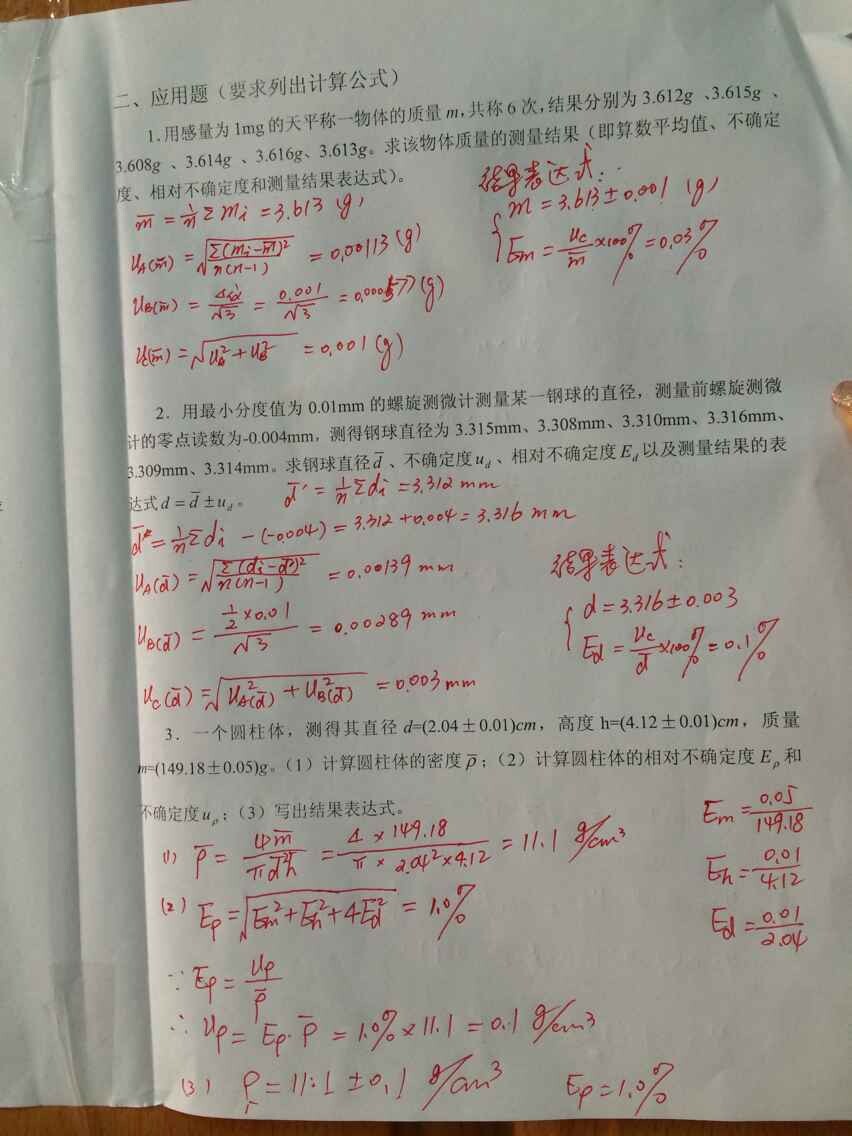 二、应用题（要求列出计算公式）
1.用感量为1mg的天平称一物体的质量m,共称6次,结果分别为3.612g、3.615g、
3.608g、3.614g、3.616g、3.613g。求该物体质量的测量结果（即算数平均值、不确定
度、相对不确定度和测量结果表达式）。
结果表达式：
m̄ = 1/n Σ mi = 3.613 (g)
m = 3.613 ± 0.001 (g)
uA(m̄) = √(Σ(mi-m̄)²/n(n-1)) = 0.00113 (g)
Em = uc/m̄ ×100% = 0.03%
uB(m̄) = Δ仪/√3 = 0.001/√3 = 0.000577 (g)
uc(m̄) = √(uA² + uB²) = 0.001 (g)
2．用最小分度值为0.01mm的螺旋测微计测量某一钢球的直径，测量前螺旋测微
计的零点读数为-0.004mm，测得钢球直径为3.315mm、3.308mm、3.310mm、3.316mm、
3.309mm、3.314mm。求钢球直径d̄、不确定度ud、相对不确定度Ed以及测量结果的表
达式d = d̄ ± ud。
d̄' = 1/n Σdi = 3.312 mm
d̄ = 1/n Σdi - (-0.004) = 3.312 + 0.004 = 3.316 mm
uA(d̄) = √(Σ(di-d̄')²/n(n-1)) = 0.00139 mm
结果表达式：
uB(d̄) = (1/2 × 0.01)/√3 = 0.00289 mm
d = 3.316 ± 0.003
Ed = uc/d̄ ×100% = 0.1%
uc(d̄) = √(uA²(d̄) + uB²(d̄)) = 0.003 mm
3．一个圆柱体，测得其直径d=(2.04±0.01)cm，高度h=(4.12±0.01)cm，质量
m=(149.18±0.05)g。（1）计算圆柱体的密度ρ̄；（2）计算圆柱体的相对不确定度Eρ和
不确定度uρ；（3）写出结果表达式。
(1) ρ̄ = 4m̄/πd̄²h̄ = 4×149.18/π×2.04²×4.12 = 11.1 g/cm³
Em = 0.05/149.18
Eh = 0.01/4.12
(2) Eρ = √(Em² + Eh² + 4Ed²) = 1.0%
Ed = 0.01/2.04
∵ Eρ = uρ/ρ̄
∴ uρ = Eρ·ρ̄ = 1.0% × 11.1 = 0.1 g/cm³
(3) ρ = 11.1 ± 0.1 g/cm³ Eρ = 1.0%